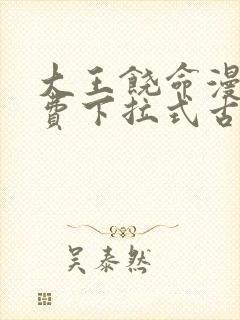 大王饶命漫
费下拉式古
吴泰然